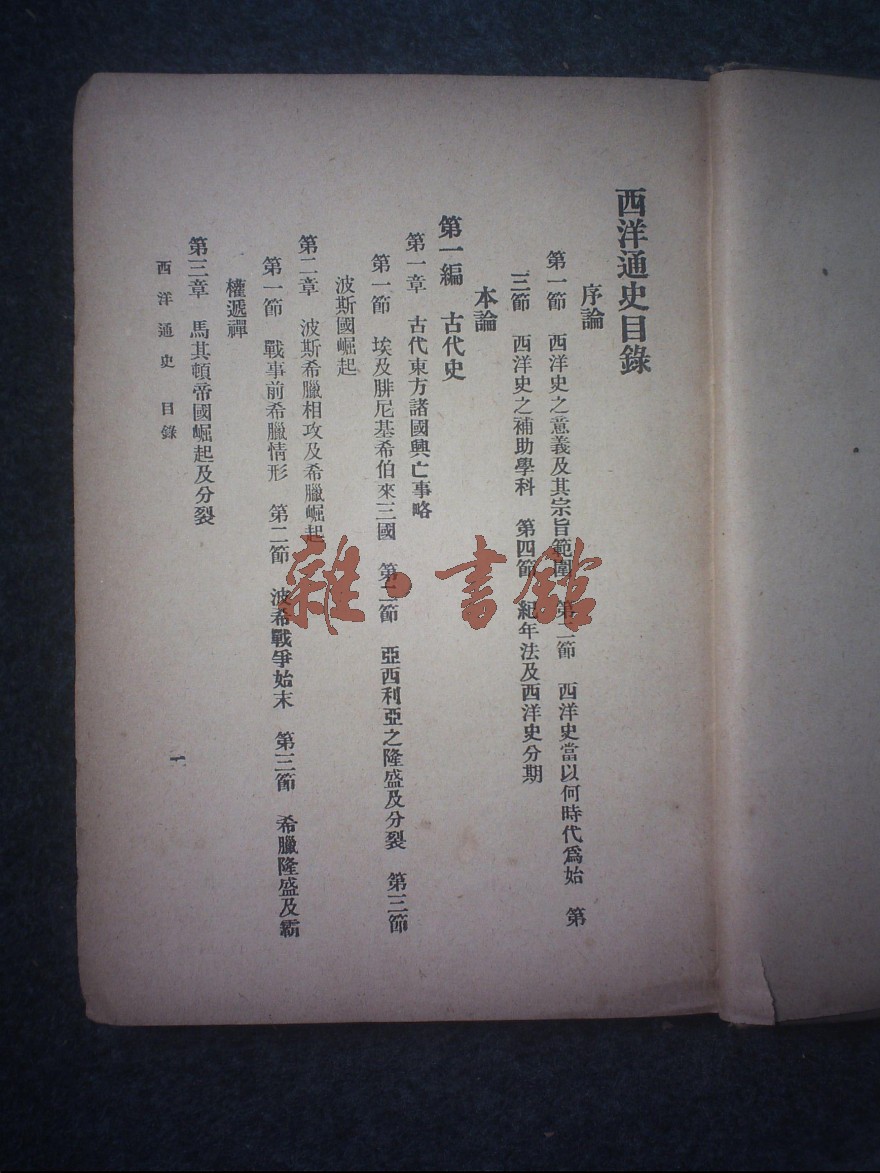 西洋通史目錄
序論
第一節　西洋史之意義及其宗旨範圍　第二節　西洋史當以何時代爲始　第
三節　西洋史之補助學科　第四節　紀年法及西洋史分期
本論
第一編　古代史
第一章　古代東方諸國興亡事略
第一節　埃及腓尼基希伯來三國　第二節　亞西利亞之隆盛及分裂　第三節
波斯國崛起
第二章　波斯希臘相攻及希臘崛起
第一節　戰事前希臘情形　第二節　波希戰爭始末　第三節　希臘隆盛及霸
權遞禪
第三章　馬其頓帝國崛起及分裂
西洋通史　目錄
一
雜·書館